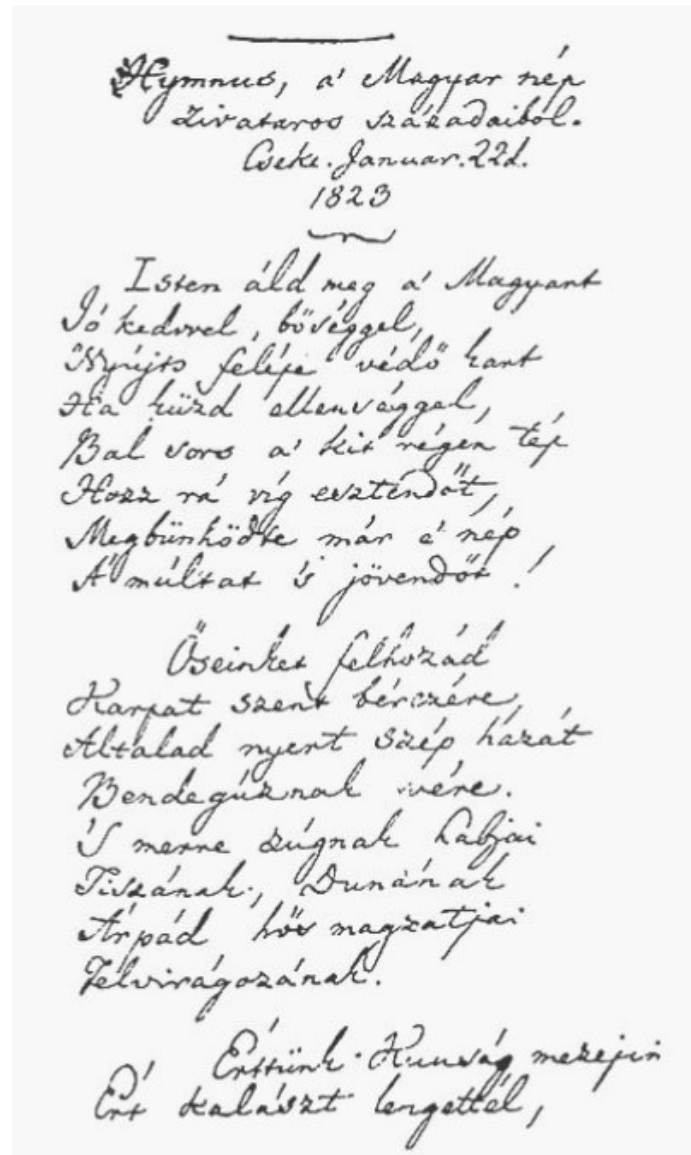 Hymnus, a' Magyar nép
zivataros századaiból.
Cseke. Januar. 22d.
1823
Isten áld meg a' Magyart
Jó kedvvel, bőséggel,
Nyújts feléje védő kart
Ha küzd ellenséggel,
Bal sors a' kit régen tép
Hozz rá víg esztendőt,
Megbűnhődte már e' nép
A' múltat 's jövendőt!
Őseinket felhozád
Karpat szent bérczére,
Altalad nyert szép hazát
Bendegúznak vére.
'S merre zúgnak habjai
Tiszának, Dunának
Árpád hős magzatjai
Felvirágozának.
Érttünk Kunság mezejin
Ért kalászt lengettél,